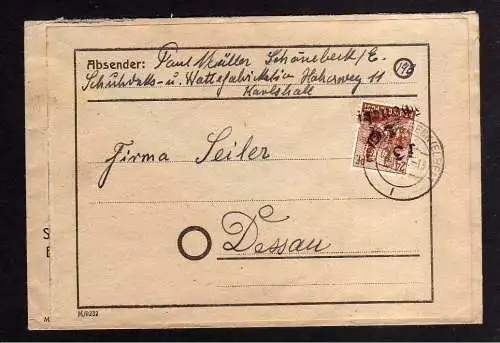 Absender: Paul Müller Schönebeck/E.
Schuhdaks- u. Wattefabrikation Hoherweg 11
Karlshall
Firma Seiler
Dessau
M/0232
S
E
M
24